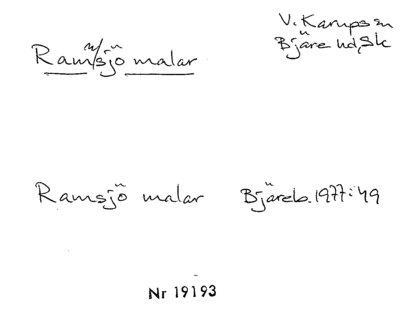 V. Karups sn
Bjäre hd, Sk
Ram/m/sjö malar
Ramsjö malar Bjäreb. 1977:49
Nr 19193